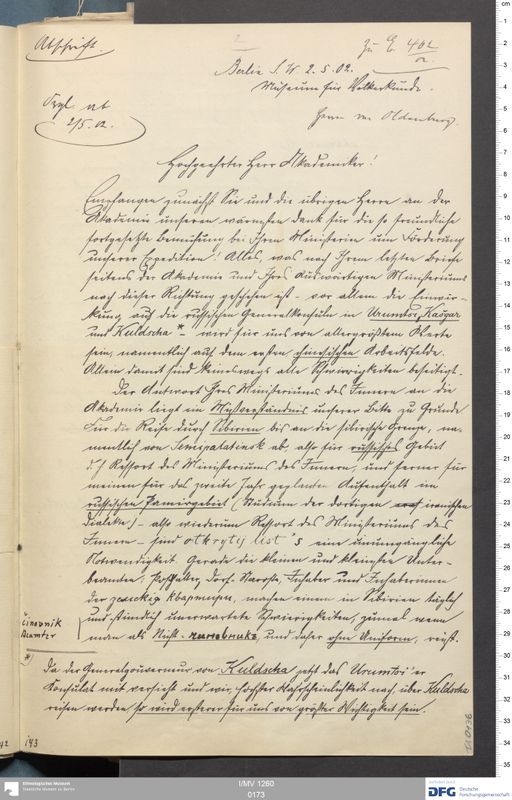 Abschrift.
2
Zu E. 402/02.
Berlin S.W. 2.5.02.
Museum für Völkerkunde.
Vgl. ab
2/5.02.
Herrn von Oldenburg.
Hochgeehrter Herr Akademiker!
Empfangen zunächst Sie und die übrigen Herren an der
Akademie unseren wärmsten Dank für die so freundliche
fortgesetzte Bemühung bei Ihren Ministerien um Förderung
unserer Expedition! Alles, was nach Ihrem letzten Briefe
seitens der Akademie und Ihres Auswärtigen Ministeriums
nach dieser Richtung geschehen ist – vor allem die Einwir-
kung auf die russischen Generalkonsuln in Urumtsi, Kašgar
und Kuldscha * – wird für uns von allergrößtem Werte
sein, namentlich auf dem ersten chinesischen Arbeitsfelde.
Allein damit sind keineswegs alle Schwierigkeiten beseitigt.
Der Antwort Ihres Ministeriums des Innern an die
Akademie liegt ein Mißverständnis unserer Bitte zu Grunde
Für die Reise durch Sibirien bis an die sibirische Grenze, na-
mentlich von Semipalatinsk ab, also für russisches Gebiet
d. h. Ressort des Ministeriums des Innern, und ferner für
meinen für das zweite Jahr geplanten Aufenthalt im
russischen Pamirgebiet (Studium der dortigen iranischen
Dialekte) – also wiederum Ressort des Ministeriums des
Innern – sind otkrytyj list's eine unumgängliche
Notwendigkeit. Gerade die kleinen und kleinsten Unter-
beamten, Posthalter, Dorf-Starosta, Inhaber und Inhaberinnen
der земскія квартиры, machen einem in Sibirien täglich
und stündlich unerwartete Schwierigkeiten, zumal wenn
man als Nicht-чиновникъ, und daher ohne Uniform, reist.
činovnik
Beamter
*) Da der Generalgouverneur von Kuldscha jetzt das Urumtsi'er
Konsulat mit versieht und wir höchster Wahrscheinlichkeit nach über Kuldscha
reisen werden so wird ersterer für uns von größter Wichtigkeit sein.
42
143
I/MV 1260
0173
Ethnologisches Museum
Staatliche Museen zu Berlin
gefördert durch
DFG Deutsche
Forschungsgemeinschaft